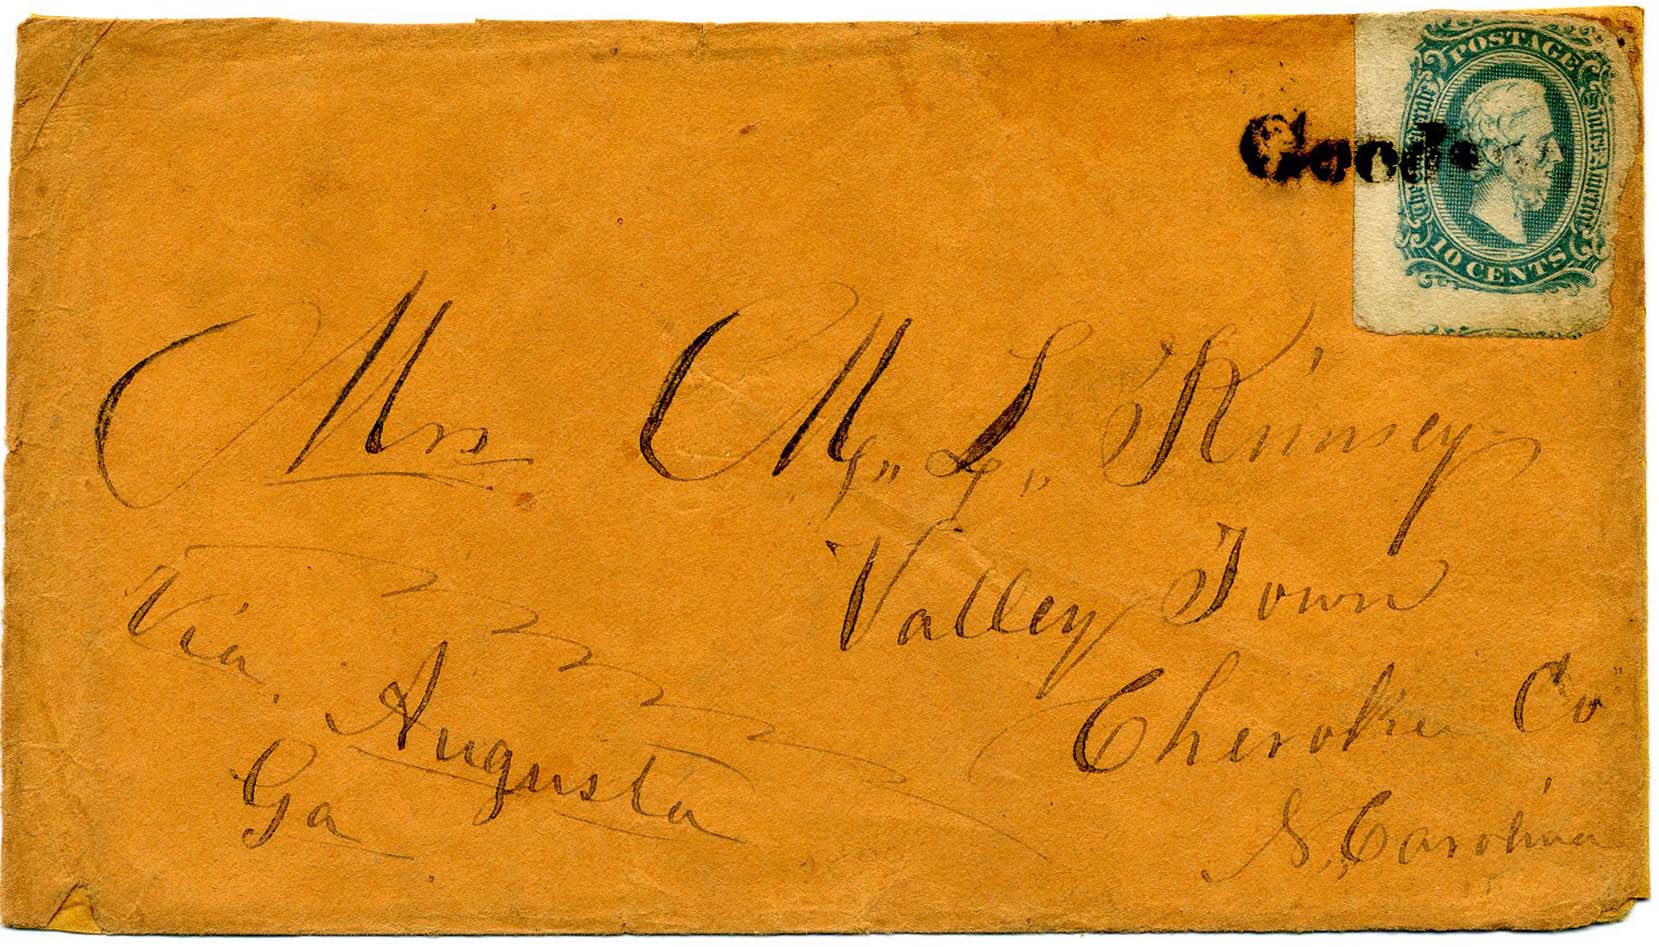 POSTAGE
The Confederate States of America
10 CENTS
Goods
Mrs. M,, L,, Kimsey
Valley Town
Cherokee Co
N. Carolina
Via
Augusta
Ga